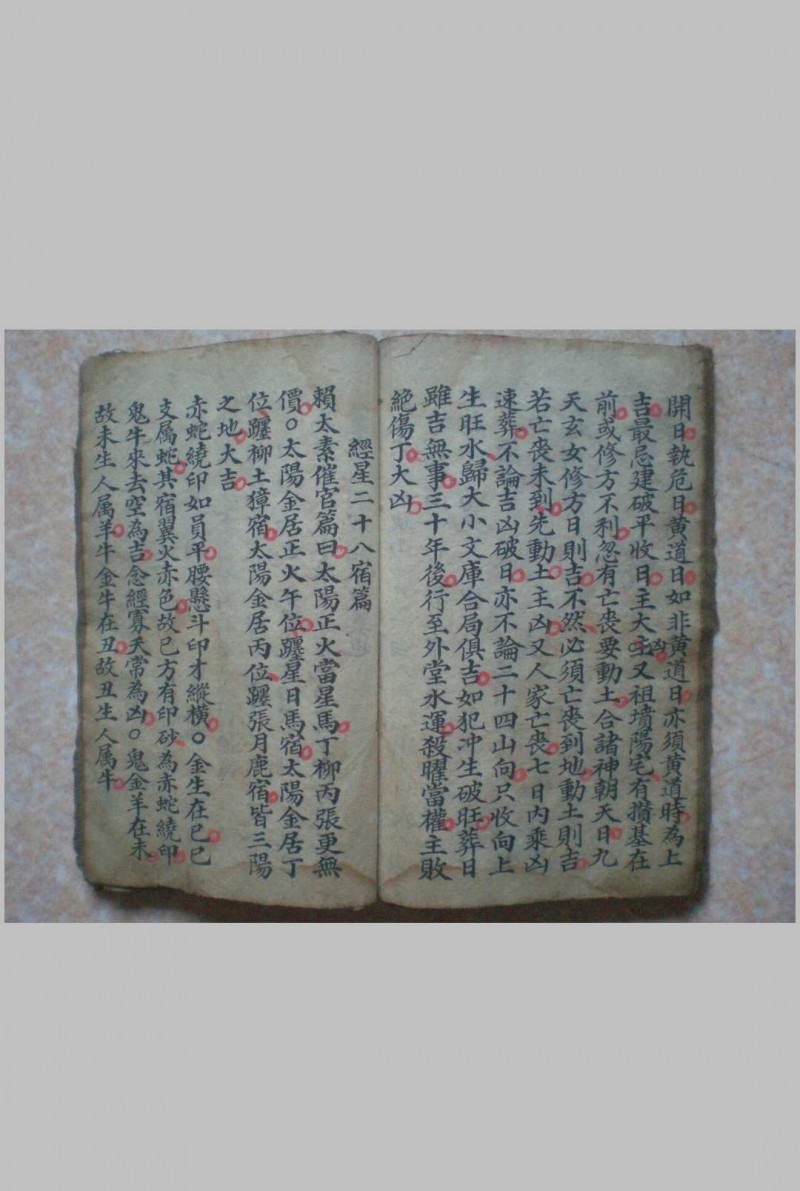 開日執危日黄道日如非黄道日亦須黄道時為上
吉最忌建破平收日主大凶又祖墳陽宅有攢基在
前或修方不利忽有亡喪要動土合諸神朝天日九
天玄女修方日則吉不然必須亡喪到地動土則吉
若亡喪未到先動土主凶又人家亡喪七日內乘凶
速葬不論吉凶破日亦不論二十四山向只收向上
生旺水歸大小文庫合局俱吉如犯冲生破旺葬日
雖吉無事三十年後行至外堂水運殺曜當權主敗
絕傷丁大凶
經星二十八宿篇
賴太素催官篇曰太陽正火當星馬丁柳丙張更無
價○太陽金居正火午位躔星日馬宿太陽金居丁
位躔柳土獐宿太陽金居丙位躔張月鹿宿皆三陽
之地大吉
赤蛇繞印如員平腰懸斗印才縱橫○金生在巳巳
支属蛇其宿翼火赤色故巳方有印砂為赤蛇繞印
鬼牛來去空為吉念經寡夭常為凶○鬼金羊在未
故未生人属羊牛金牛在丑故丑生人属牛